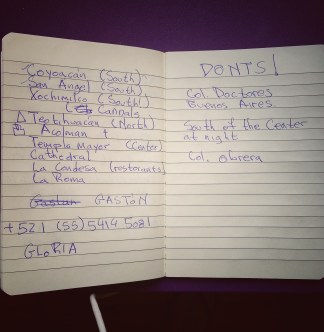 Coyoacán (South)
San Angel (South)
Xochimilco (South)
Canals
Teotihuacán (North)
Acolman †
Templo Mayor (Center)
Cathedral
La Condesa (restaurants)
La Roma
Gaston GASTÓN
+521 (55) 5414 5081
GLORIA
DONTS!
Col. Doctores
Buenos Aires
South of the Center
at night
Col. Obrera